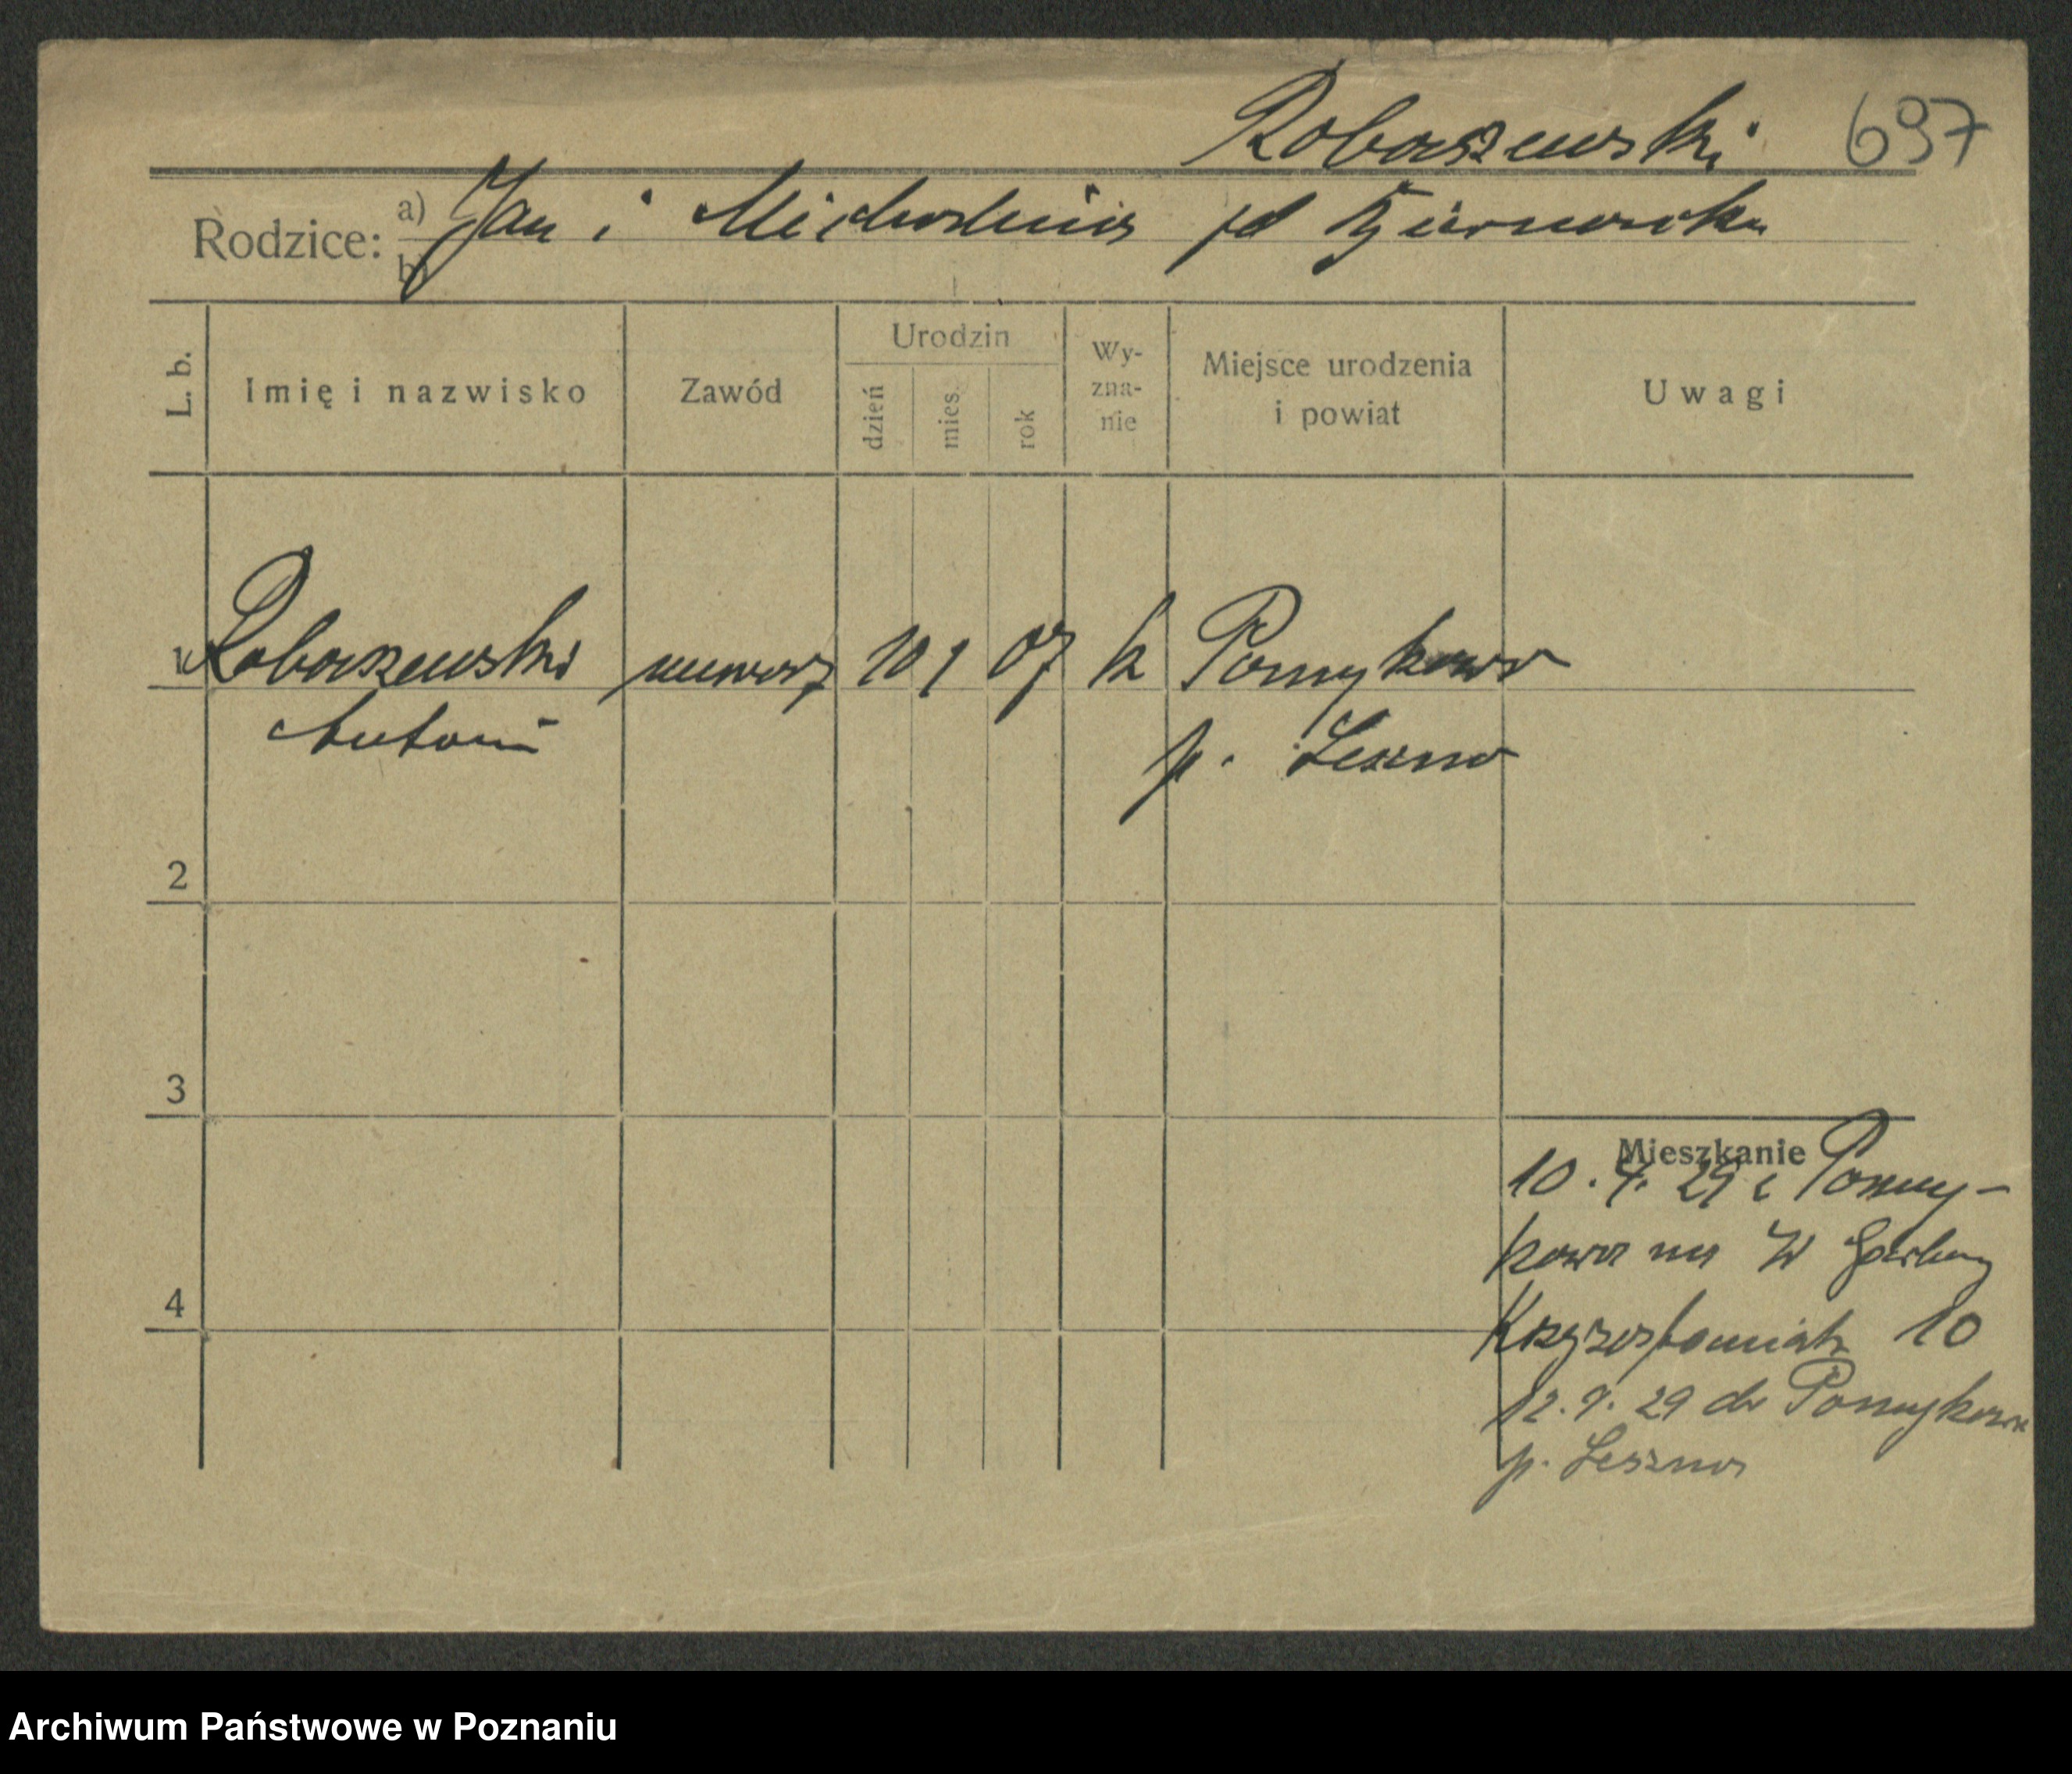 Robaszewski 697
Rodzice: a) Jan i Michalina
b)
L. b. Imię i nazwisko Zawód Urodzin dzień mies. rok Wy-zna-nie Miejsce urodzenia i powiat Uwagi
1 Robaszewski murarz 10 1 07 k Pomykowo
Antoni p. Leszno
2
3
Mieszkanie
10. 4. 29 z Pomy-
kowa na W Garbary
4
Krzyżostaniak 10
12. 9. 29 do Pomykowa
p. Leszno
Archiwum Państwowe w Poznaniu